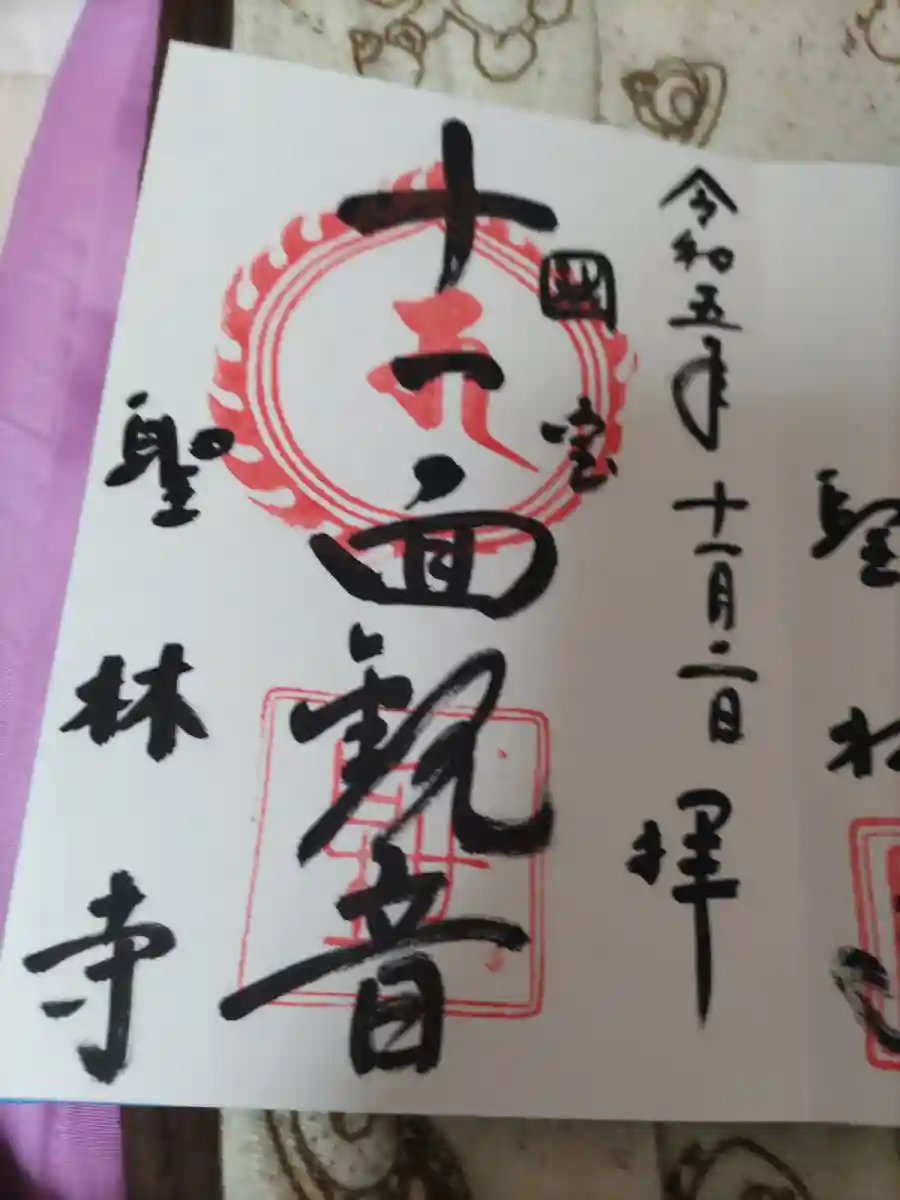 令和五年十一月二日 拝
国宝
十一面観音
聖林寺
聖